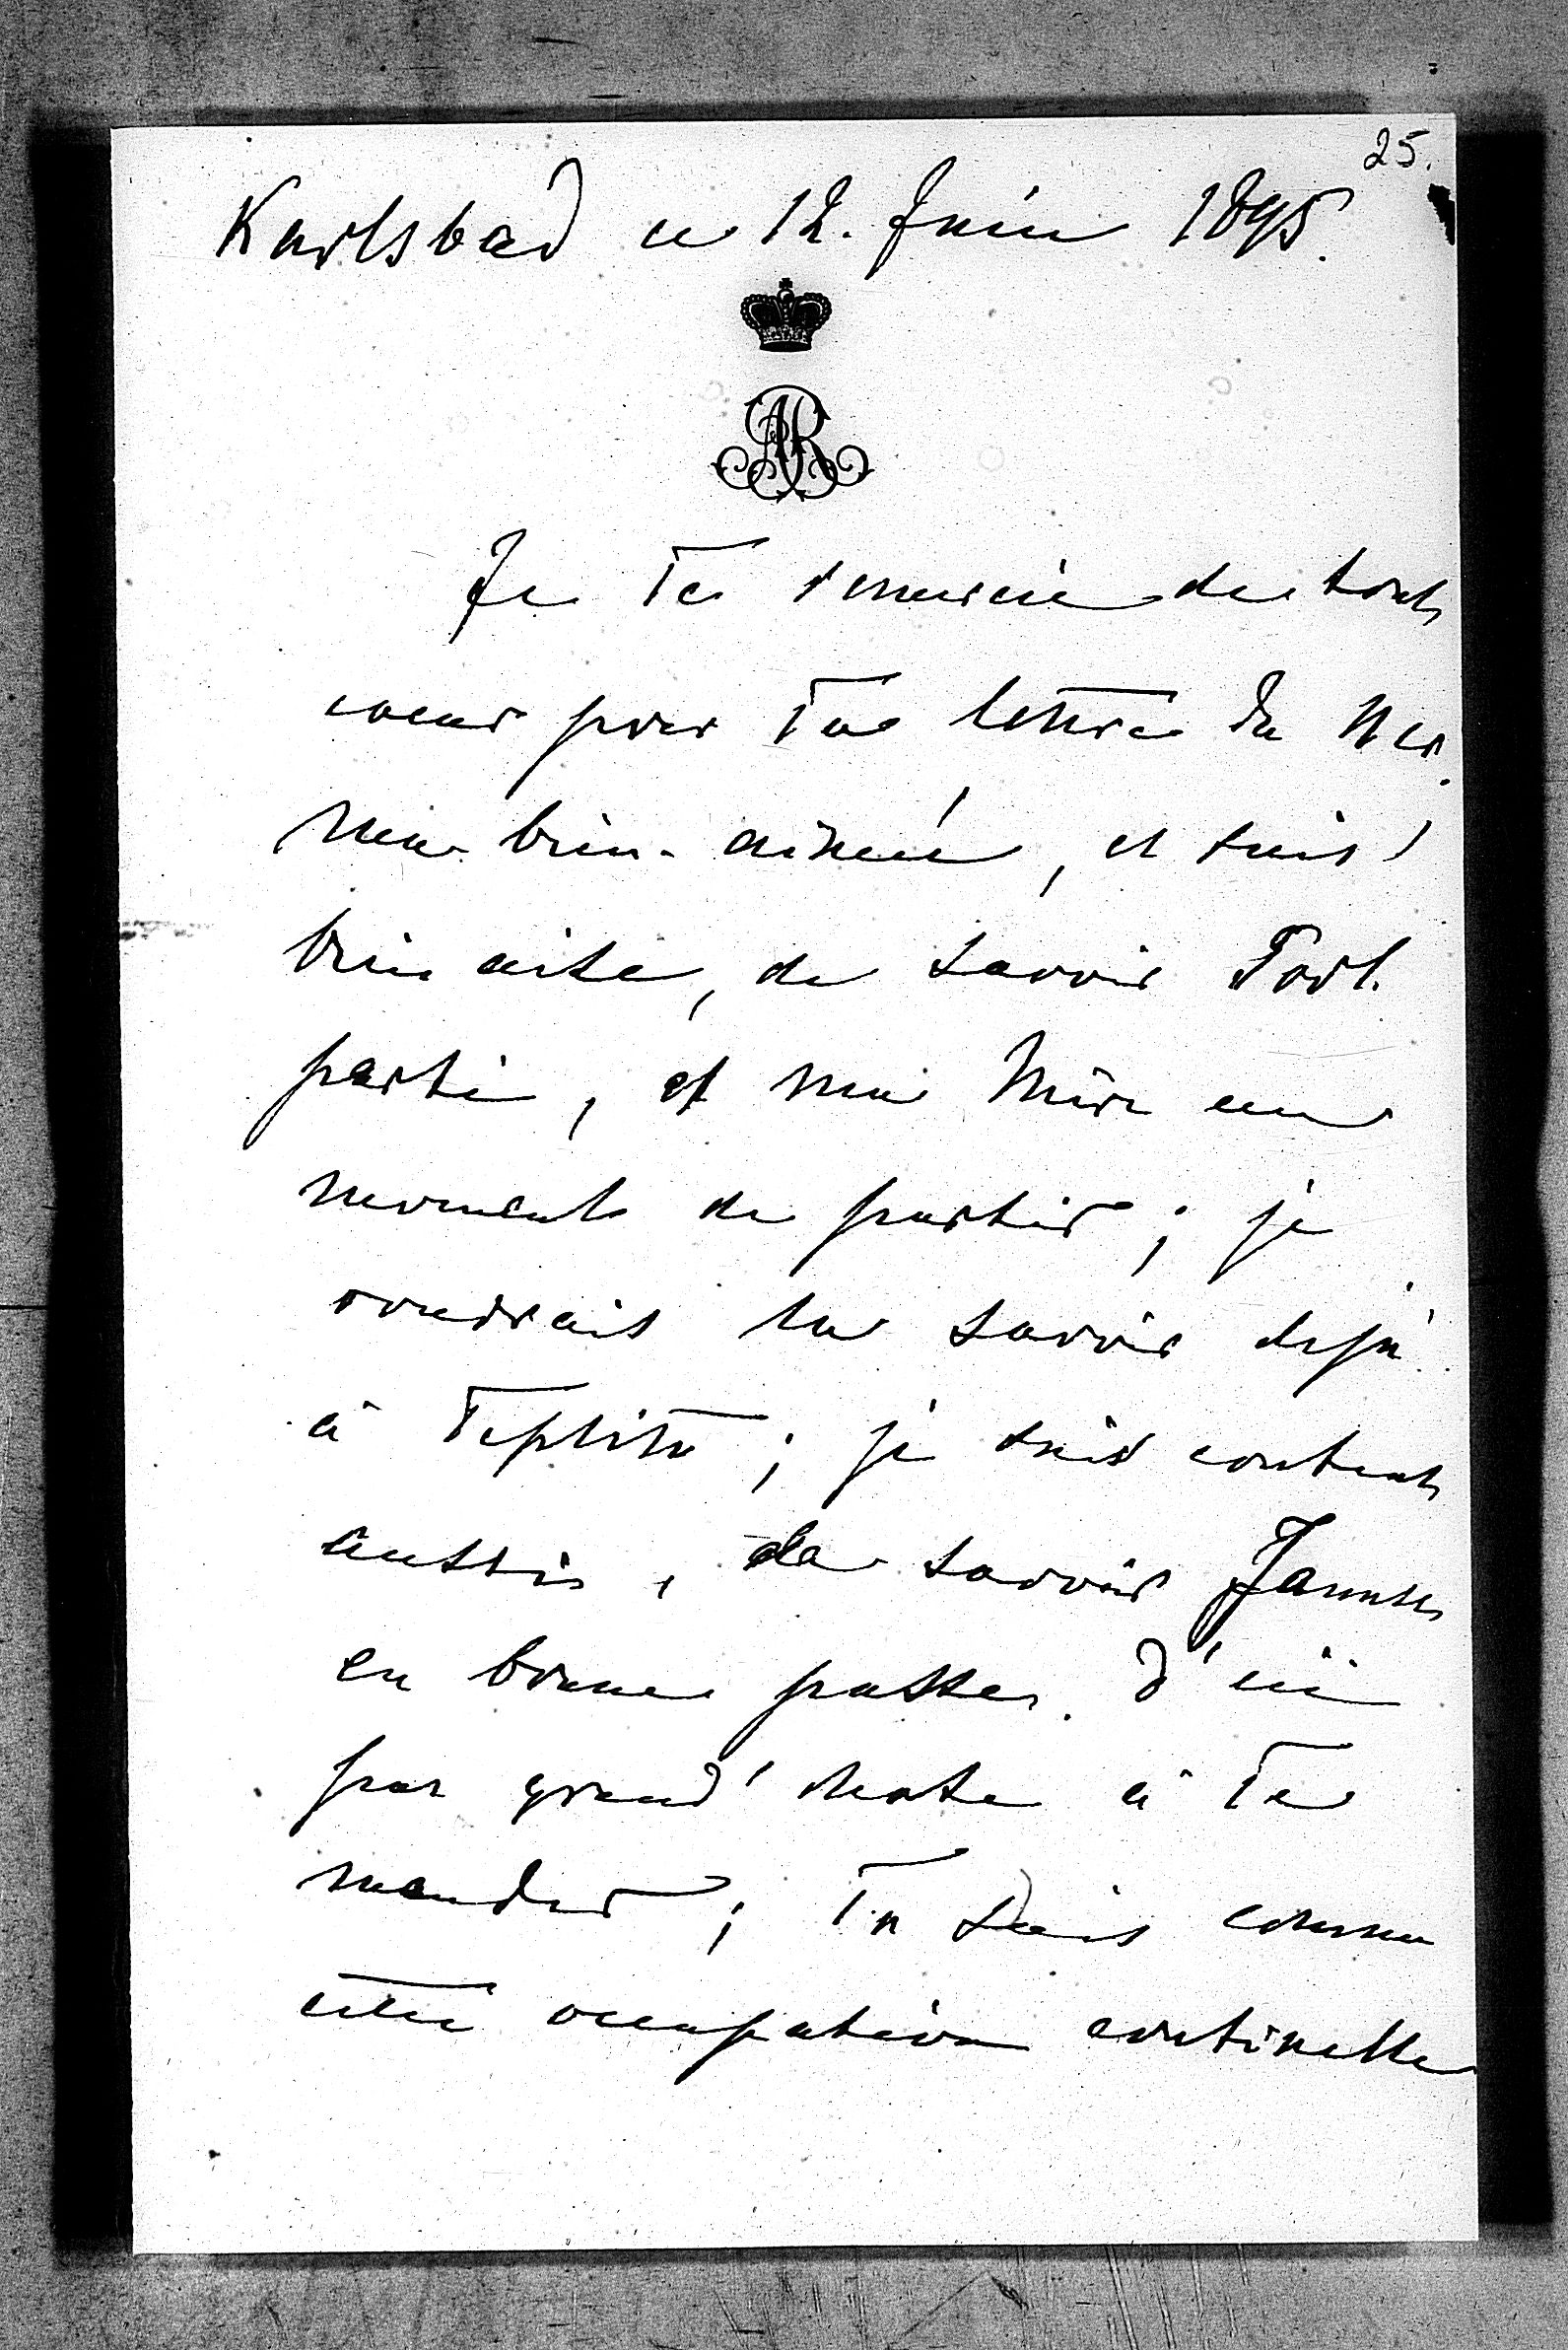 25.
Karlsbad ce 12. Juin 1895.
AR
Je Te remercie de tout
coeur pour Ta lettre du
ma bien-aimée, et suis
bien aise, de savoir
partie, et ma Mère au
moment de partir; je
voudrais la savoir dejà
à Teplitz; je suis content
aussi, de savoir
en bonne passe. D'ici
pas grand' chose à Te
mander; Tu sais comme
cette occupation continelle